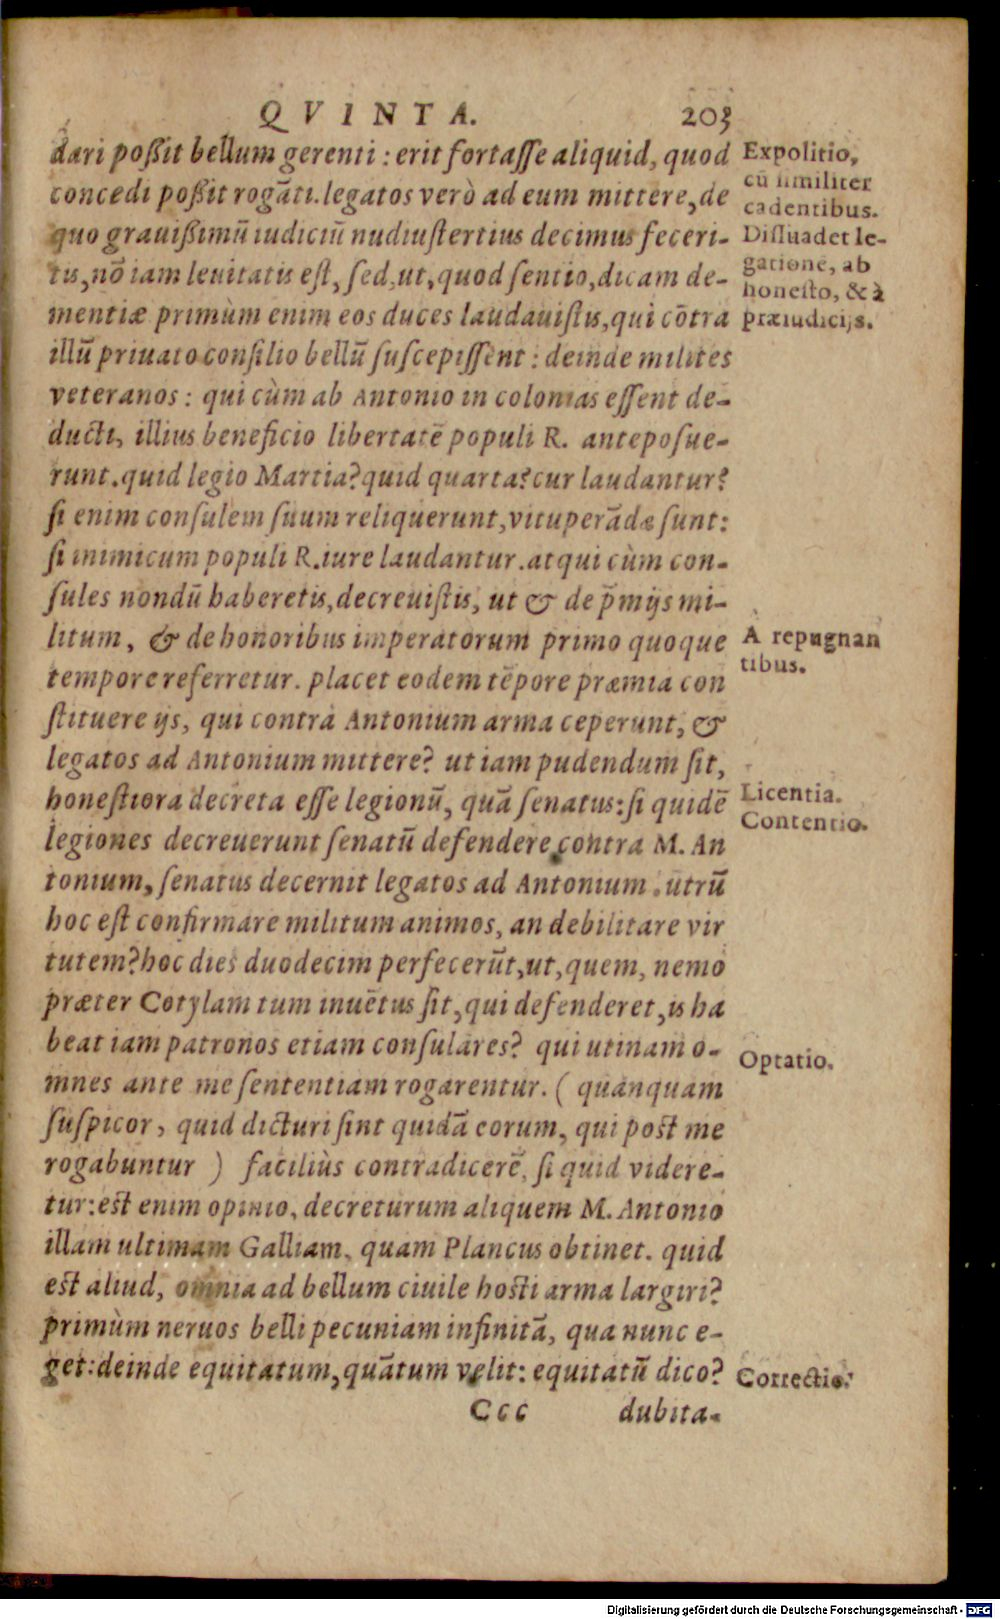 QVINTA. 203
dari poßit bellum gerenti : erit fortaſſe aliquid, quod
concedi poßit rogāti. legatos verò ad eum mittere, de
quo grauißimū iudiciū nudiuſtertius decimus feceri-
tis, nō iam leuitatis eſt, ſed, ut, quod ſentio, dicam de-
mentiæ primùm enim eos duces laudauiſtis, qui cōtra
illū priuato conſilio bellū ſuſcepiſſent : deinde milites
veteranos : qui cùm ab Antonio in colonias eſſent de-
ducti, illius beneficio libertatē populi R. antepoſue-
runt. quid legio Martia? quid quarta? cur laudantur?
ſi enim conſulem ſuum reliquerunt, vituperādæ ſunt:
ſi inimicum populi R. iure laudantur. atqui cùm con-
ſules nondū haberetis, decreuiſtis, ut & de p̄mijs mi-
litum, & de honoribus imperatorum primo quoque
tempore referretur. placet eodem tēpore præmia con
ſtituere ijs, qui contra Antonium arma ceperunt, &
legatos ad Antonium mittere? ut iam pudendum ſit,
honeſtiora decreta eſſe legionū, quā ſenatus: ſi quidē
legiones decreuerunt ſenatū defendere contra M. An
tonium, ſenatus decernit legatos ad Antonium. utrū
hoc eſt confirmare militum animos, an debilitare vir
tutem? hoc dies duodecim perfecerūt, ut, quem, nemo
præter Cotylam tum inuētus ſit, qui defenderet, is ha
beat iam patronos etiam conſulares? qui utinam o-
mnes ante me ſententiam rogarentur. ( quanquam
ſuſpicor, quid dicturi ſint quidā eorum, qui poſt me
rogabuntur ) faciliùs contradicerē, ſi quid videre-
tur: eſt enim opinio, decreturum aliquem M. Antonio
illam ultimam Galliam, quam Plancus obtinet. quid
eſt aliud, omnia ad bellum ciuile hoſti arma largiri?
primùm neruos belli pecuniam infinitā, qua nunc e-
get: deinde equitatum, quātum velit: equitatū dico?
Ccc dubita-
Expolitio,
cū ſimiliter
cadentibus.
Diſſuadet le-
gatione, ab
honeſto, & à
præiudicijs.
A repugnan
tibus.
Licentia.
Contentio.
Optatio.
Correctio.
Digitalisierung gefördert durch die Deutsche Forschungsgemeinschaft - DFG